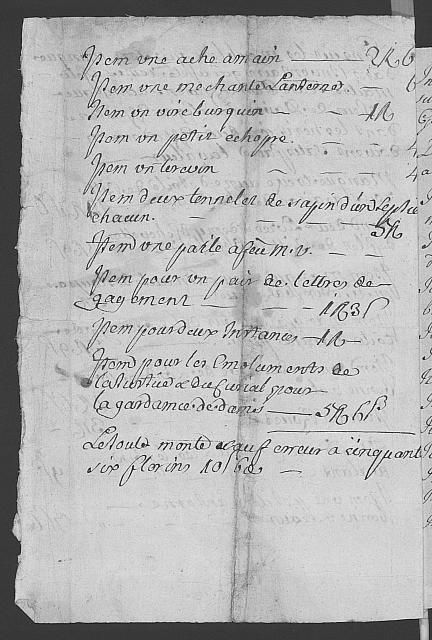 Item une ache a main —— 2 ll 6
Item une mechante Lanterne. 6
Item un vireburquin — — 1 ll
Item un petit echopre. — — 4
Item un terevin — — 4
Item deux tennelet de sapin d'un septie
chacun. — — — 5 ll
Item une paile a feu m. v. — —
Item pour un pair de lettres de
gagement —— 1 ll 3 s
Item pour deux Instances — 1 ll —
Item pour les Emoluments de
la Justice & du Curial pour
la gardance de danis —— 5 ll 6 s
Le tout monte sauf erreur a cinquant
six florins 10